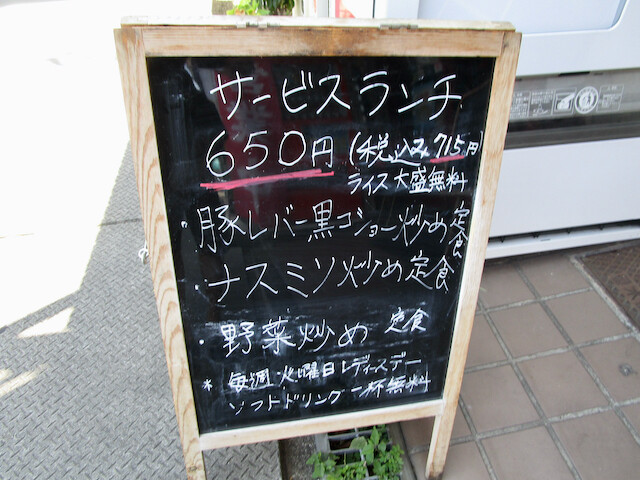 サービスランチ
650円 (税込み715円)
ライス大盛無料
・豚レバー黒コショー炒め定食
・ナスミソ炒め定食
・野菜炒め 定食
* 毎週・火曜日レディースデー
ソフトドリンク一杯無料